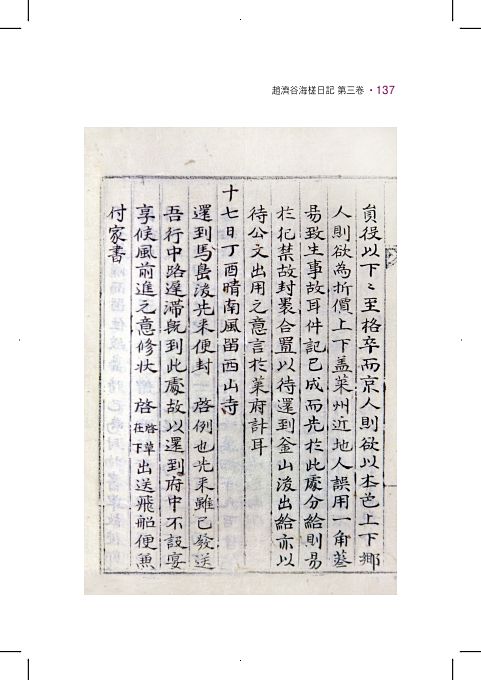 趙濟谷海槎日記 第三卷 · 137
員役以下〻至格卒而京人則欲以本邑上下鄕
人則欲為折價上下盖萊州近地人誤用一角蔘
易致生事故耳件記已成而先於此處分給則易
於犯禁故封裹合置以待還到釜山後出給亦以
待公文出用之意言於萊府計耳
十七日丁酉晴南風留西山寺
還到馬島後先来便封 啓例也先来雖已發送
吾行中路遲滯旣到此處故以還到府中不設宴
享候風前進之意修狀 啓 啓草在下 出送飛船便兼
付家書